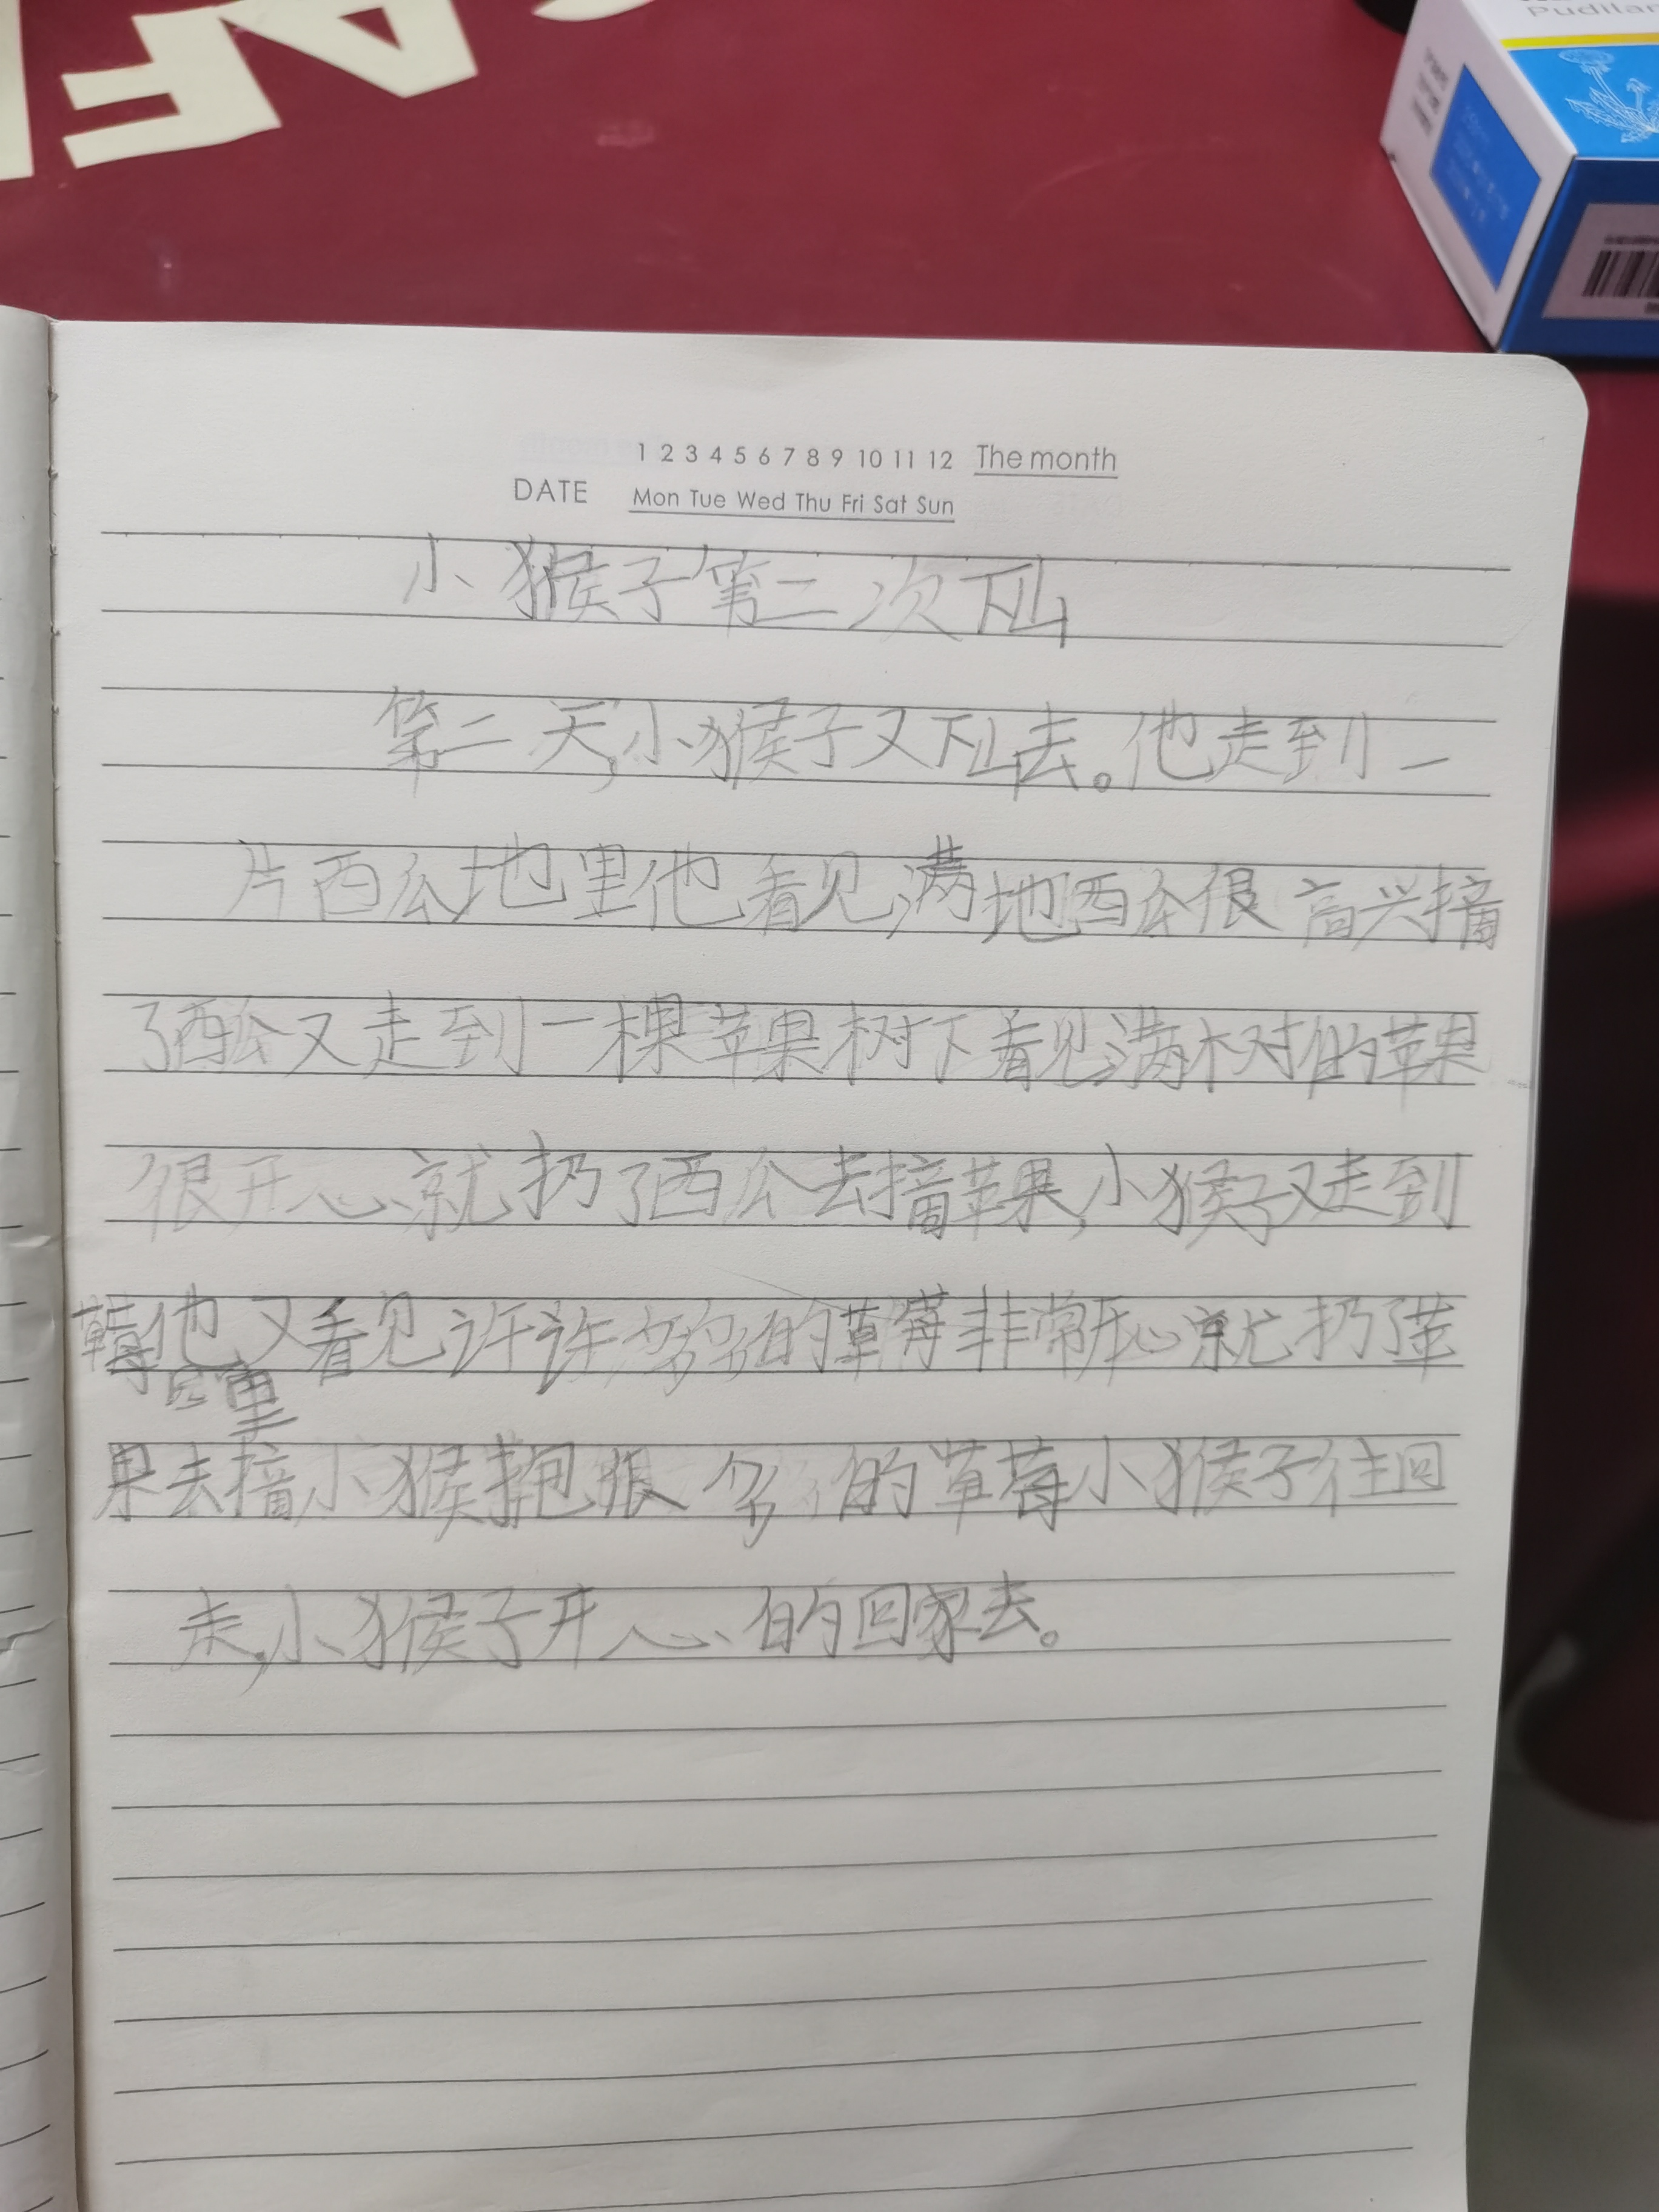 Pudilan
1 2 3 4 5 6 7 8 9 10 11 12 The month
DATE Mon Tue Wed Thu Fri Sat Sun
小猴子第二次下山
第二天,小猴子又下山去。他走到一
片西瓜地里他看见满地西瓜很高兴摘
了西瓜又走到一棵苹果树下看见满树的苹果
很开心就扔了西瓜去摘苹果,小猴子又走到
草莓他又看见许许多多的草莓非常开心就扔了苹
里
果去摘小猴抱很多的草莓小猴子往回
走,小猴子开心的回家去。